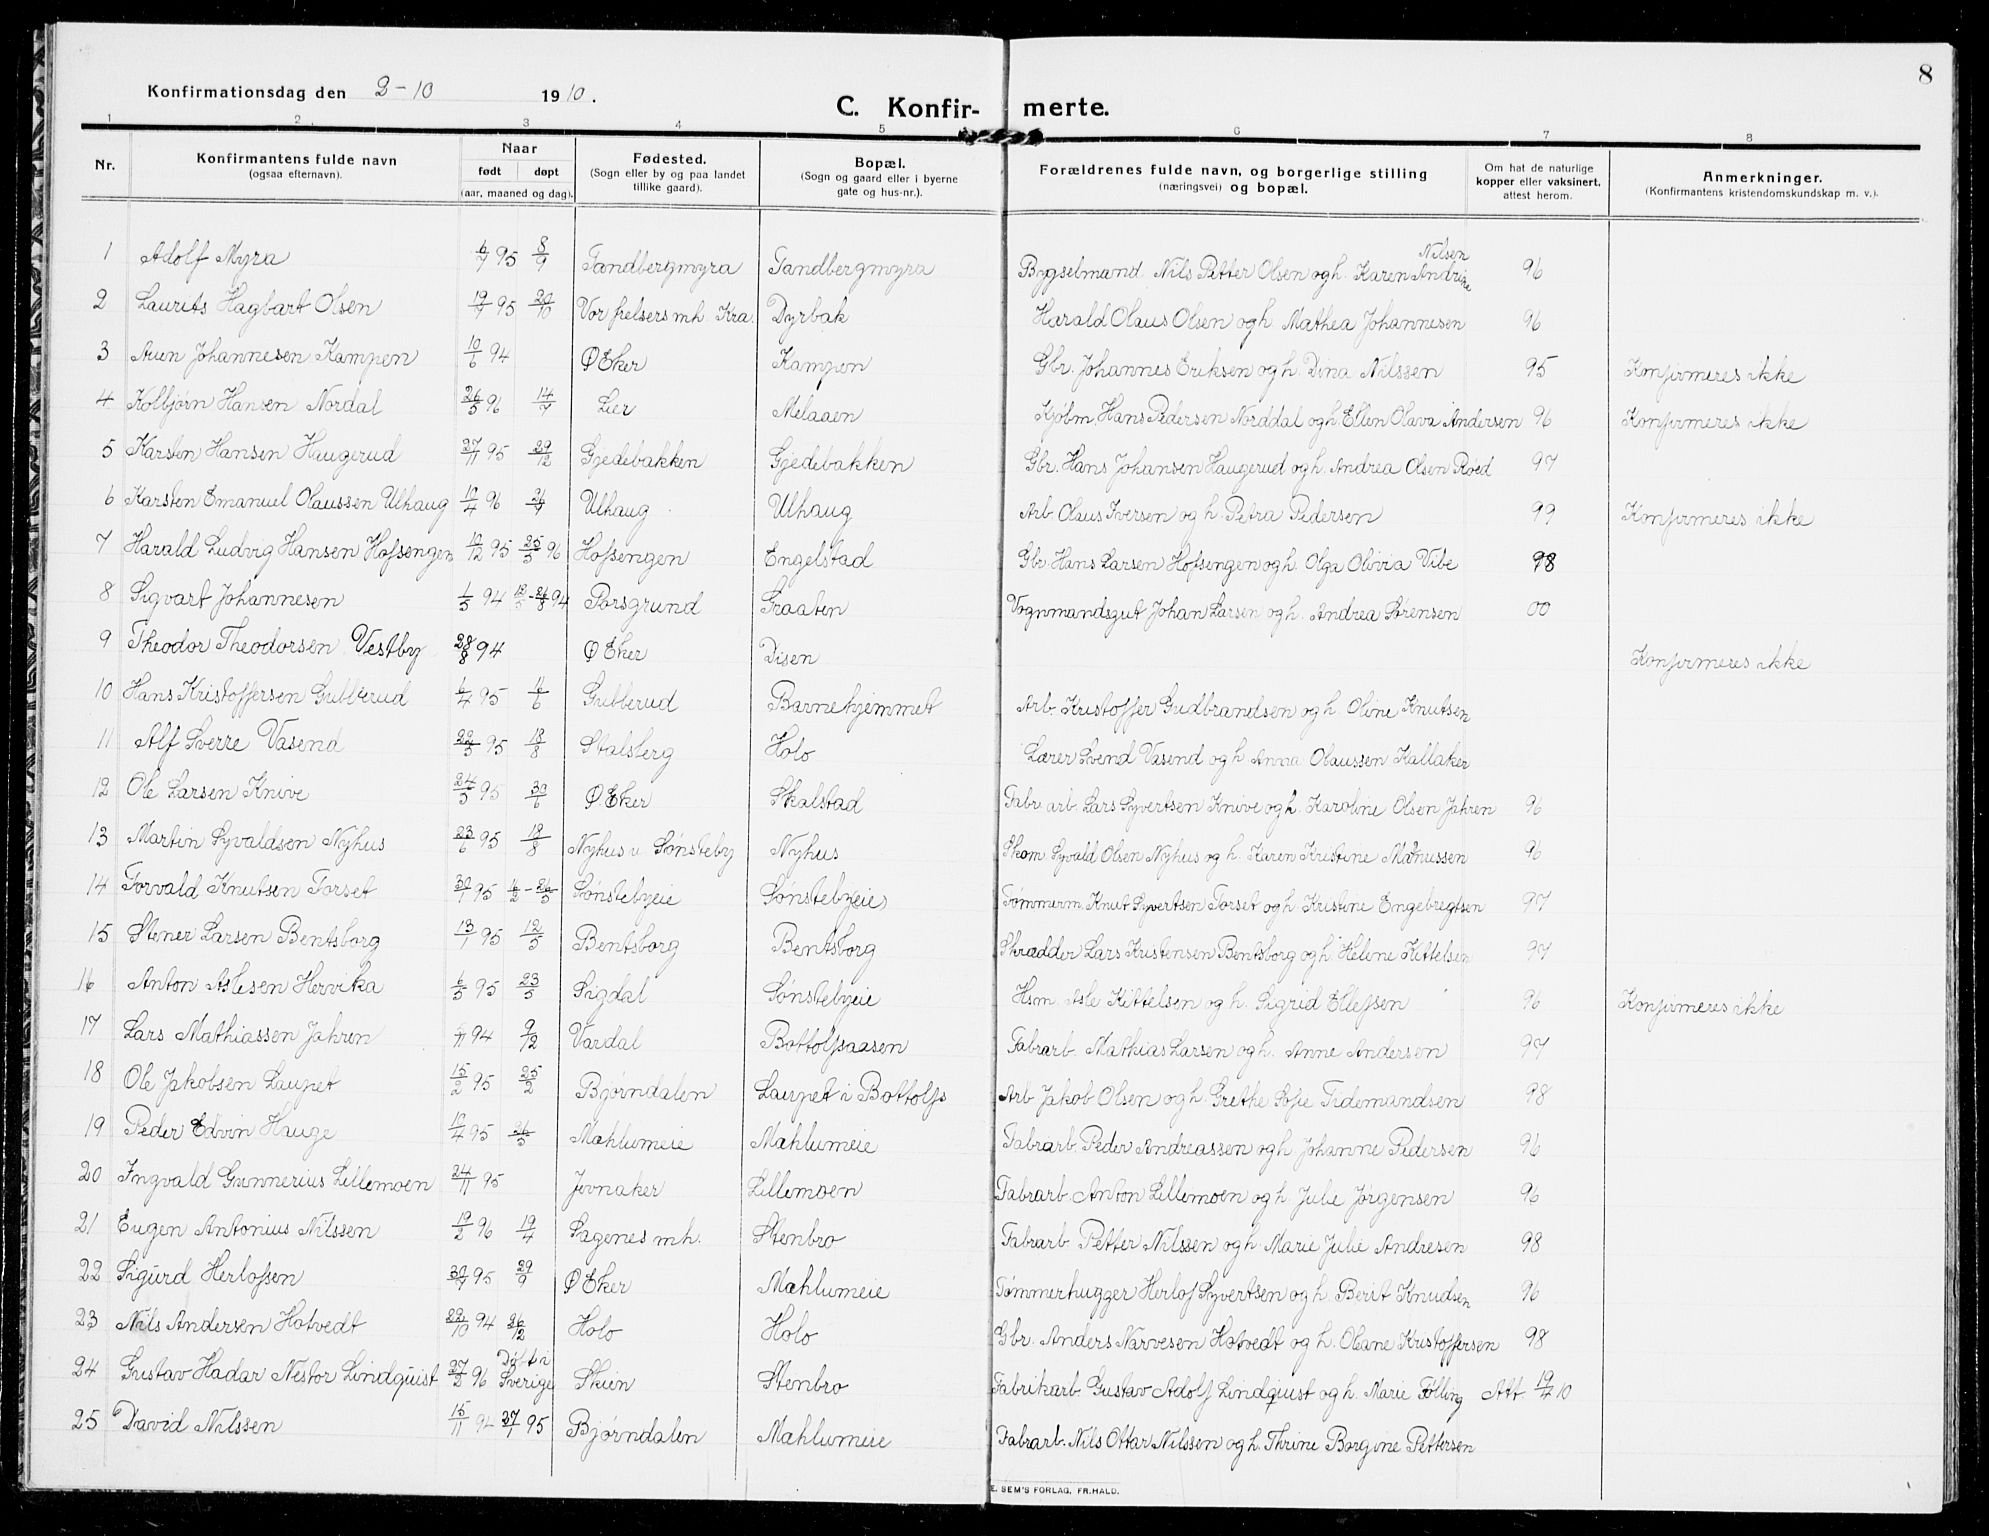 8
Konfirmationsdag den 2-10 1910.
C. Konfir- merte.
1 2 3 4 5 6 7 8
Nr. Konfirmantens fulde navn (ogsaa efternavn). Naar født døpt (aar, maaned og dag). Fødested. (Sogn eller by og paa landet tillike gaard). Bopæl. (Sogn og gaard eller i byerne gate og hus-nr.). Forældrenes fulde navn, og borgerlige stilling (næringsvei) og bopæl. Om hat de naturlige kopper eller vaksinert, attest herom. Anmerkninger. (Konfirmantens kristendomskundskap m. v.).
1 Adolf Myra 6/7 95 8/9 Tandbergmyra Tandbergmyra Bygselmand Nils Petter Olsen og h. Karen Andrine Nilsen 96
2 Laurits Hagbart Olsen 19/7 95 20/10 Vor frelsers mh. Kra. Dyrbak Harald Olaus Olsen og h. Mathea Johannesen 96
3 Auen Johannesen Kampen 10/6 94 Ø Eker Kampen Gbr. Johannes Eriksen og h. Dina Nilssen 95 Konfirmeres ikke
4 Kolbjørn Hansen Nordal 26/5 96 14/7 Lier Melaaen Kjølm. Hans Pedersen Norddal og h. Ellen Olava Andersen 96 Konfirmeres ikke
5 Karsten Hansen Haugerud 27/11 95 29/12 Gjedebakken Gjedebakken Gbr. Hans Johansen Haugerud og h. Andrea Olsen Røed 97
6 Karsten Emanuel Olaussen Ulhaug 19/4 96 26/7 Ulhaug Ulhaug Arb. Olaus Iversen og h. Petra Pedersen 99 Konfirmeres ikke
7 Harald Ludvig Hansen Hofsengen 10/12 95 25/5 96 Hofsengen Engelstad Gbr. Hans Larsen Hofsengen og h. Olga Olivia Vibe 98
8 Sigvart Johannesen 1/5 94 13/5-26/8 94 Porsgrund Graaten Vognmandsgut Johan Larsen og h. Andrea Sørensen 00
9 Theodor Theodorsen Vestby 28/8 94 Ø Eker Disen Konfirmeres ikke
10 Hans Kristoffersen Gubberud 6/4 95 16/6 Gubberud Barnehjemmet Arb. Kristoffer Gudbrandsen og h. Oline Knutsen
11 Alf Sverre Vasend 22/5 95 18/8 Stalsberg Holo Lærer Svend Vasend og h Anna Olaussen Kallaker
12 Ole Larsen Knive 24/5 95 30/6 Ø. Eker Skalstad Fabr arb. Lars Syvertsen Knive og h. Karoline Olsen Jahren 96
13 Martin Syvaldsen Nyhus 23/6 95 18/8 Nyhus u. Sønsteby Nyhus Skom. Syvald Olsen Nyhus og h. Karen Kristine Magnussen 96
14 Torvald Knutsen Torset 30/1 95 6/2-26/5 Sønstebyeie Sønstebyeie Tømmerm. Knut Syvertsen Torset og h. Kristine Engebregtsen 97
15 Stener Larsen Bentsborg 13/1 95 12/5 Bentsborg Bentsborg Skrædder Lars Kristensen Bentsborg og h. Helene Kittelsen 97
16 Anton Aslesen Hervika 6/5 95 23/5 Sigdal Sønstebyeie Hsm. Asle Kittelsen og h. Sigrid Ellefsen 96 Konfirmeres ikke
17 Lars Mathiassen Jahren /11 94 9/12 Vardal Bottolfsaasen Fabrarb. Mathias Larsen og h. Anne Andersen 97
18 Ole Jakobsen Laupet 15/2 95 25/2 Bjørndalen Laupet i Bottolfs Arb Jakob Olsen og h. Grethe Sofie Tidemandsen 98
19 Peder Edvin Hauge 19/4 95 26/5 Mæhlumeie Mæhlumeie Fabrarb. Peder Andreassen og h Johanne Pedersen 96
20 Ingvald Gunnerius Lillemoen 24/11 95 Jevnaker Lillemoen Fabrarb. Anton Lillemoen og h. Julie Jørgensen 96
21 Eugen Antonius Nilssen 19/2 96 19/4 Sagenes mh. Stenbro Fabrarb. Petter Nilssen og h. Marie Julie Andresen 98
22 Sigurd Herlofsen 30/7 95 29/9 Ø Eker Mæhlumeie Tømmerhugger Herlof Syvertsen og h. Berit Knudsen 96
23 Nils Andersen Hotvedt 22/10 94 26/12 Holo Holo Gbr. Anders Narvesen Hotvedt og h. Oleane Kristoffersen 98
24 Gustav Hadar Nestor Lindquist 27/2 96 Døbt i Sverige Skien Stenbro Fabrikarb. Gustav Adolf Lindquist og h. Marie Følling Att. 19/4 10
25 David Nilssen 15/11 94 27/1 95 Bjørndalen Mæhlumeie Fabrarb. Nils Ottar Nilssen og h. Thrine Borgine Pettersen
E. SEM'S FORLAG, FR. HALD.